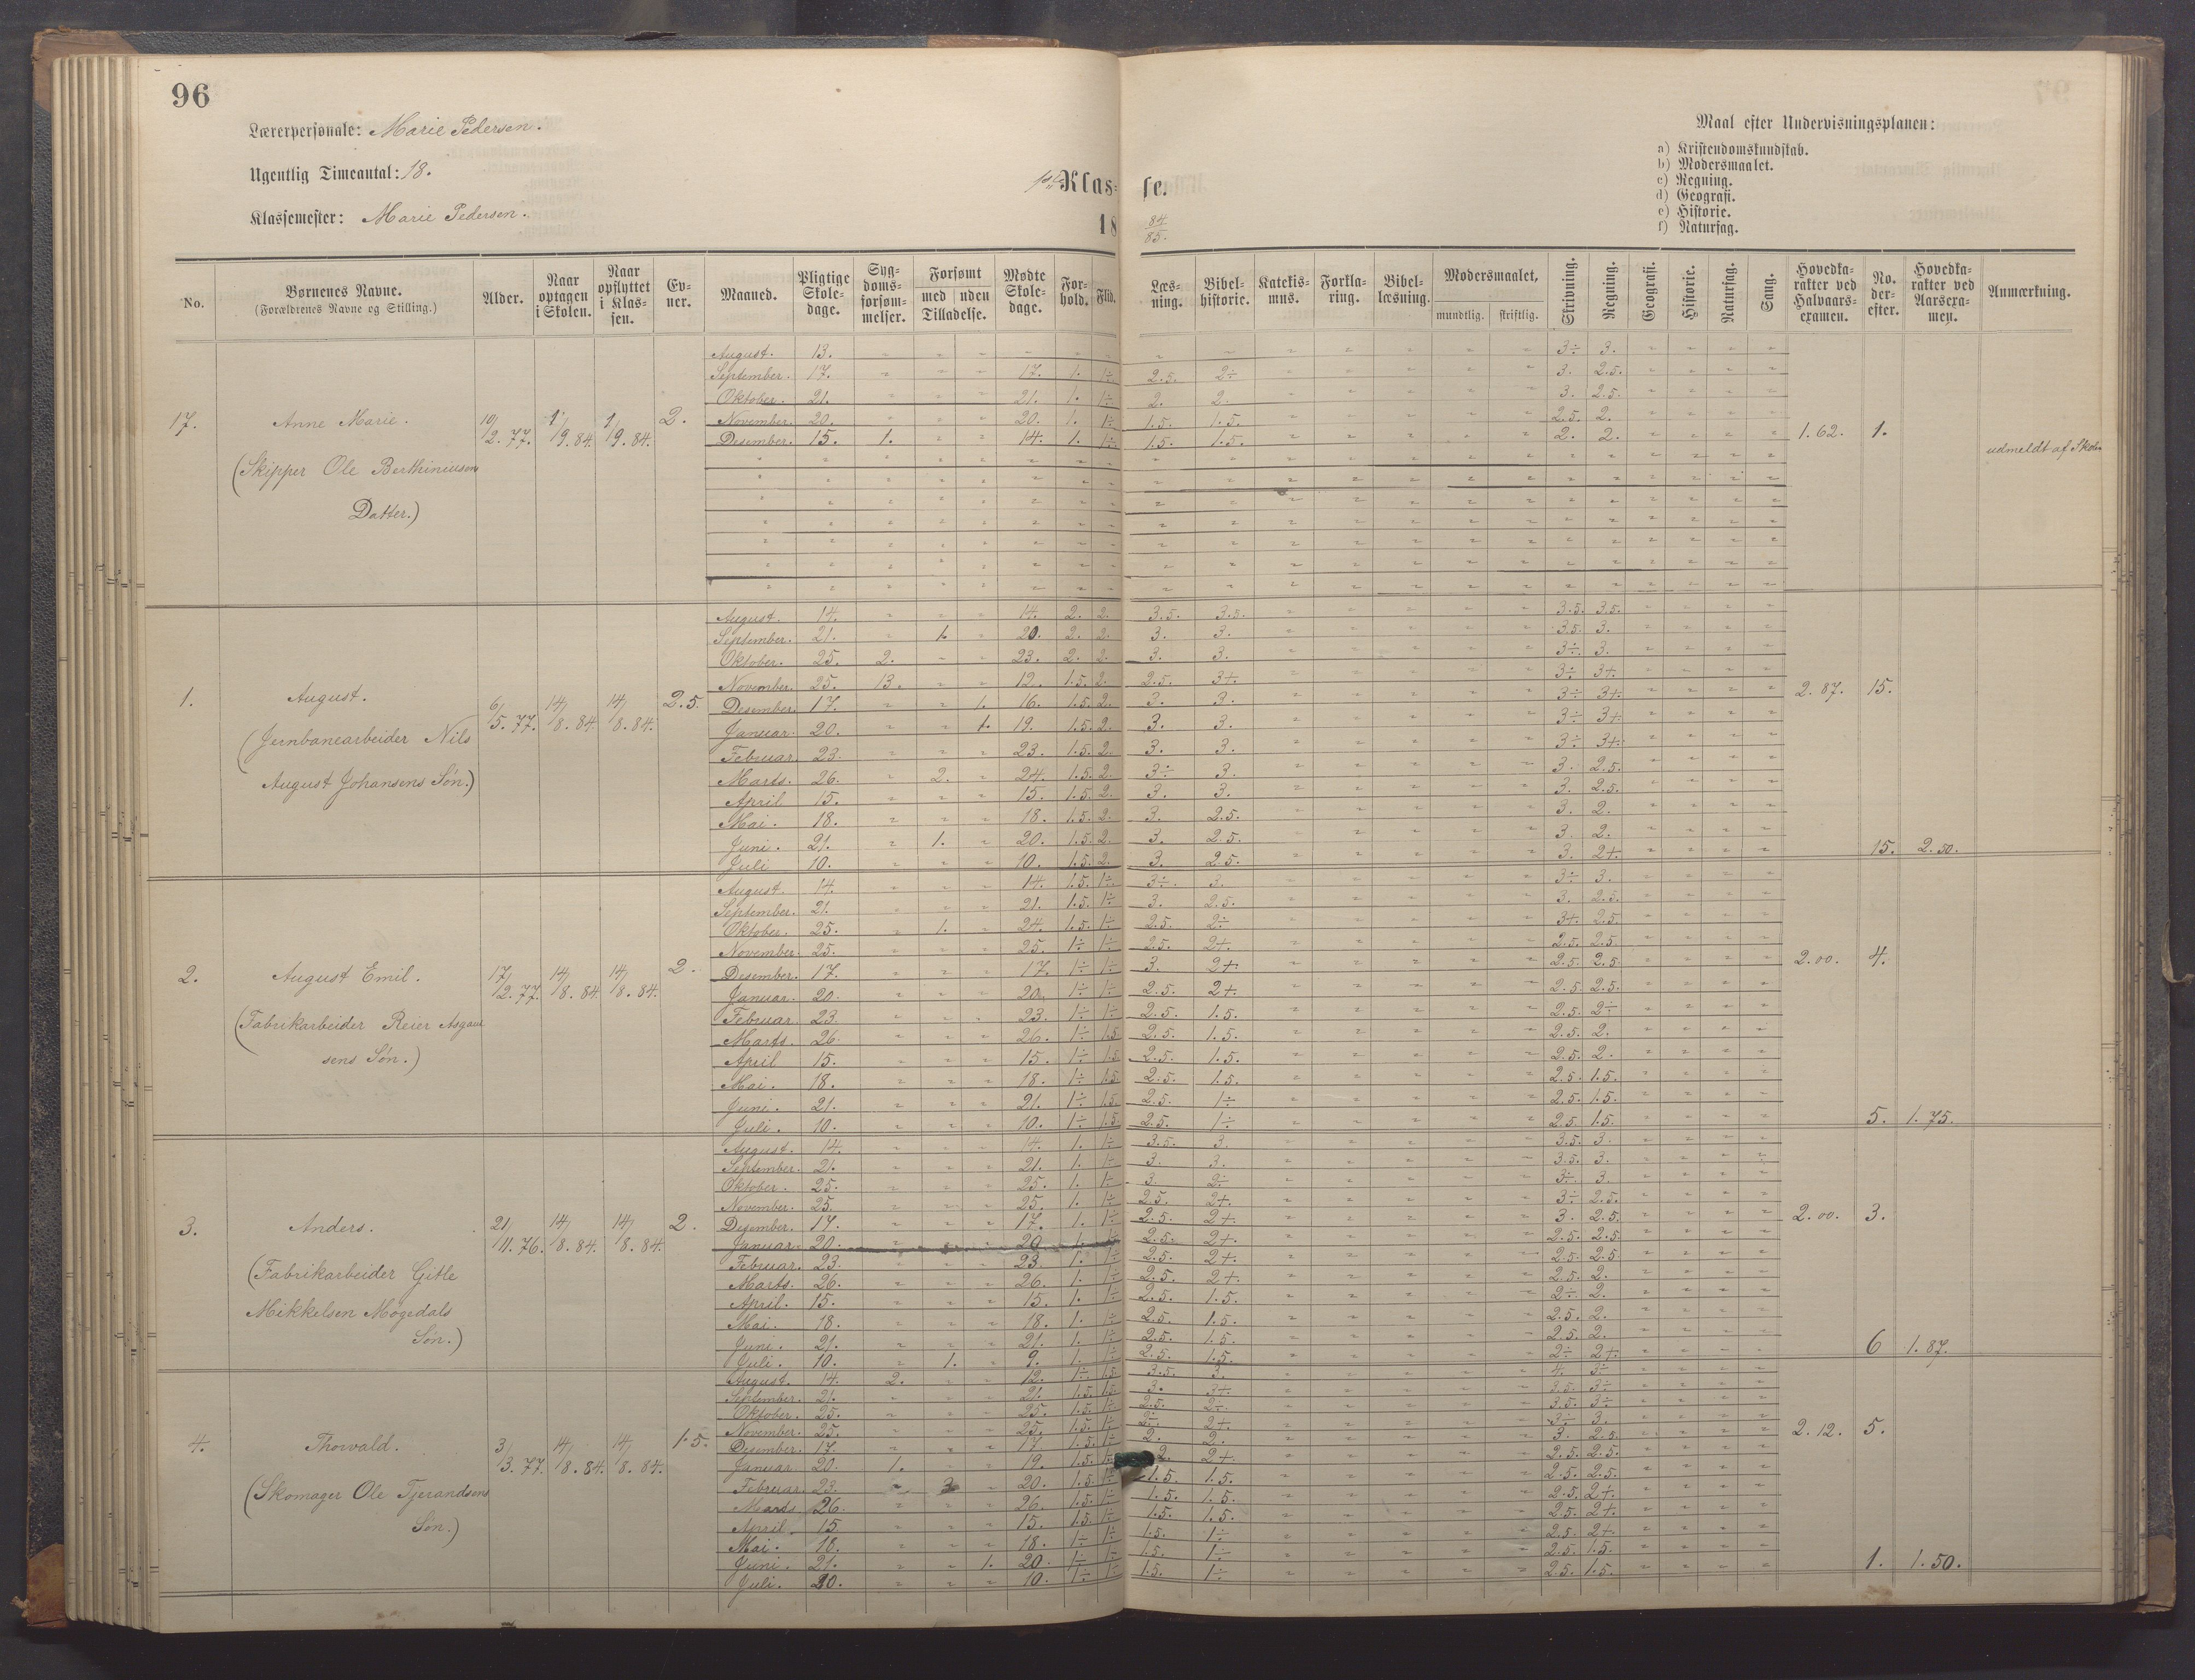 96
Lærerpersonale: Marie Pedersen.
Ugentlig Timeantal: 18.
Klassemester: Marie Pedersen.
1ste Klas- se.
18 84/85.
Maal efter Undervisningsplanen:
a) Kristendomskundskab.
b) Modersmaalet.
c) Regning.
d) Geografi.
e) Historie.
f) Naturfag.
No. | Børnenes Navne. (Forældrenes Navne og Stilling.) | Alder. | Naar optagen i Skolen. | Naar opflyttet i Klassen. | Evner. | Maaned. | Pligtige Skoledage. | Sygdomsforsømmelser. | Forsømt med uden Tilladelse. | Mødte Skoledage. | Forhold. | Flid. | Læsning. | Bibelhistorie. | Katekismus. | Forklaring. | Bibellæsning. | Modersmaalet, mundtlig. skriftlig. | Skrivning. | Regning. | Geografi. | Historie. | Naturfag. | Sang. | Hovedkarakter ved Halvaarsexamen. | No. derefter. | Hovedkarakter ved Aarsexamen. | Anmærkning.
17. Anne Marie. 10/2. 77. 1/9. 84. 1/9. 84. 2. 1.62. 1. udmeldt af Skolen
(Skipper Ole Berthiniusens
Datter.)
August. 13. 3÷ 3.
September. 17. 17. 1. 1÷ 2.5. 2÷ 3. 2.5.
Oktober. 21. 21. 1. 1÷ 2. 2. 3. 2.5.
November. 20. 20. 1. 1÷ 1.5. 1.5. 2.5. 2.
Desember. 15. 1. 14. 1. 1÷ 1.5. 1.5. 2. 2.
1. August. 6/5. 77. 14/8. 84. 14/8. 84. 2.5. 2.87. 15.
(Jernbanearbeider Nils
August Johansens Søn.)
August. 14. 14. 2. 2. 3.5. 3.5. 3.5. 3.5.
September. 21. 1. 20. 2. 2. 3. 3. 3.5. 3.
Oktober. 25. 2. 23. 2. 2. 3. 3. 3÷ 3.
November. 25. 13. 12. 1.5. 2. 2.5. 3+. 3÷ 3+
Desember. 17. 1. 16. 1.5. 2. 3. 3. 3÷ 3+.
Januar. 20. 1. 19. 1.5. 2. 3. 3. 3÷ 3+.
Februar. 23. 23. 1.5. 2. 3. 3. 3÷ 3+.
Marts. 26. 2. 24. 1.5. 2. 3÷ 3. 3. 2.5.
April 15. 15. 1.5. 2. 3. 3. 3. 2.5.
Mai. 18. 18. 1.5. 2. 3. 2.5. 3. 2.
Juni. 21. 1. 20. 1.5. 2. 3. 2.5. 3. 2.
Juli 10. 10. 1.5. 2. 3. 2.5. 3. 2+. 15. 2.50.
2. August Emil. 17/2. 77. 14/8. 84. 14/8. 84. 2. 2.00. 4.
(Fabrikarbeider Reier Asgaut
sens Søn.)
August. 14. 14. 1.5. 1÷ 3÷. 3. 3÷ 3.
September. 21. 21. 1.5. 1÷ 3. 2.5. 3. 2.5.
Oktober. 25. 1. 24. 1.5. 1÷ 2.5. 2÷ 3+. 2.5.
November. 25. 25. 1÷ 1÷ 2.5. 2+. 2.5. 2.5.
Desember. 17. 17. 1÷ 1÷ 3. 2+. 2.5. 2.5.
Januar. 20. 20. 1÷ 1÷ 2.5. 2+. 2.5. 2.5.
Februar. 23. 23. 1÷ 1÷ 2.5. 1.5. 2.5. 2÷
Marts. 26. 26. 1÷ 1.5 2.5. 1.5. 2.5. 2.
April 15. 15. 1÷ 1.5 2.5. 1.5. 2.5. 2.
Mai. 18. 18. 1÷ 1.5. 2.5. 1.5. 2.5. 1.5.
Juni. 21. 21. 1÷ 1.5. 2.5. 1÷ 2.5. 1.5.
Juli. 10. 10. 1÷ 1.5 2.5. 1÷ 2.5. 1.5. 5. 1.75.
3. Anders. 21/11. 76. 14/8. 84. 14/8. 84. 2. 2.00. 3.
(Fabrikarbeider Gitle
Mikkelsen Mogedals
Søn.)
August. 14. 14. 1. 1÷ 3.5. 3. 3.5. 3.
September. 21. 21. 1. 1÷ 3. 3. 3.5. 3.
Oktober. 25. 25. 1. 1÷ 3. 2÷ 3÷ 3.
November. 25. 25. 1. 1÷ 2.5. 2+. 3÷ 2.5.
Desember. 17. 17. 1. 1÷ 2.5. 2+. 3. 2.5.
Januar. 20. 20 1. 1÷ 2.5. 2+. 2.5. 2.5.
Februar. 23. 23. 1. 1÷ 2.5. 2+. 2.5. 2.5
Marts. 26. 26. 1. 1÷ 2.5. 2+. 2.5. 2.
April. 15. 15. 1. 1÷ 2.5. 1.5. 2÷ 2.
Mai. 18. 18. 1. 1÷ 2.5. 1.5. 2.5. 2.
Juni. 21. 21. 1. 1÷ 2.5. 1.5. 2.5. 2.
Juli. 10. 1. 9. 1. 1÷ 2.5. 1.5. 2÷ 2+. 6 1.87.
4. Thorvald. 3/3. 77. 14/8. 84. 14/8. 84. 1.5. 2.12. 5.
(Skomager Ole Tjerandsens
Søn.)
August. 14. 2. 12. 1÷ 1.5. 3.5. 3. 4. 3÷
September. 21. 21. 1.5. 1.5. 3. 3+. 3.5. 3÷
Oktober. 25. 25. 1.5. 1÷ 2.5. 2÷. 3.5. 3÷
November. 25. 25. 1.5. 1÷ 2÷ 2+. 3÷ 3.
Desember. 17. 17 1.5. 1÷ 2. 2. 3. 2.5.
Januar. 20. 1. 19. 1.5. 1÷ 2. 2+. 2.5. 2.5.
Februar. 23. 3 20. 1.5. 1÷ 1.5. 1.5. 2.5. 2.5.
Marts 26. 26. 1.5. 1÷ 1.5. 1.5. 2.5. 2+.
April. 15 15. 1.5. 1÷ 1.5. 1.5. 2.5. 2+.
Mai. 18. 18. 1÷ 1÷ 1.5. 1÷ 2.5. 2+.
Juni. 21. 1. 20. 1÷ 1÷ 1.5. 1÷ 2.5. 1.5.
Juli. 10. 10. 1÷ 1÷ 1.5. 1÷ 2.5. 1.5. 1. 1.50.